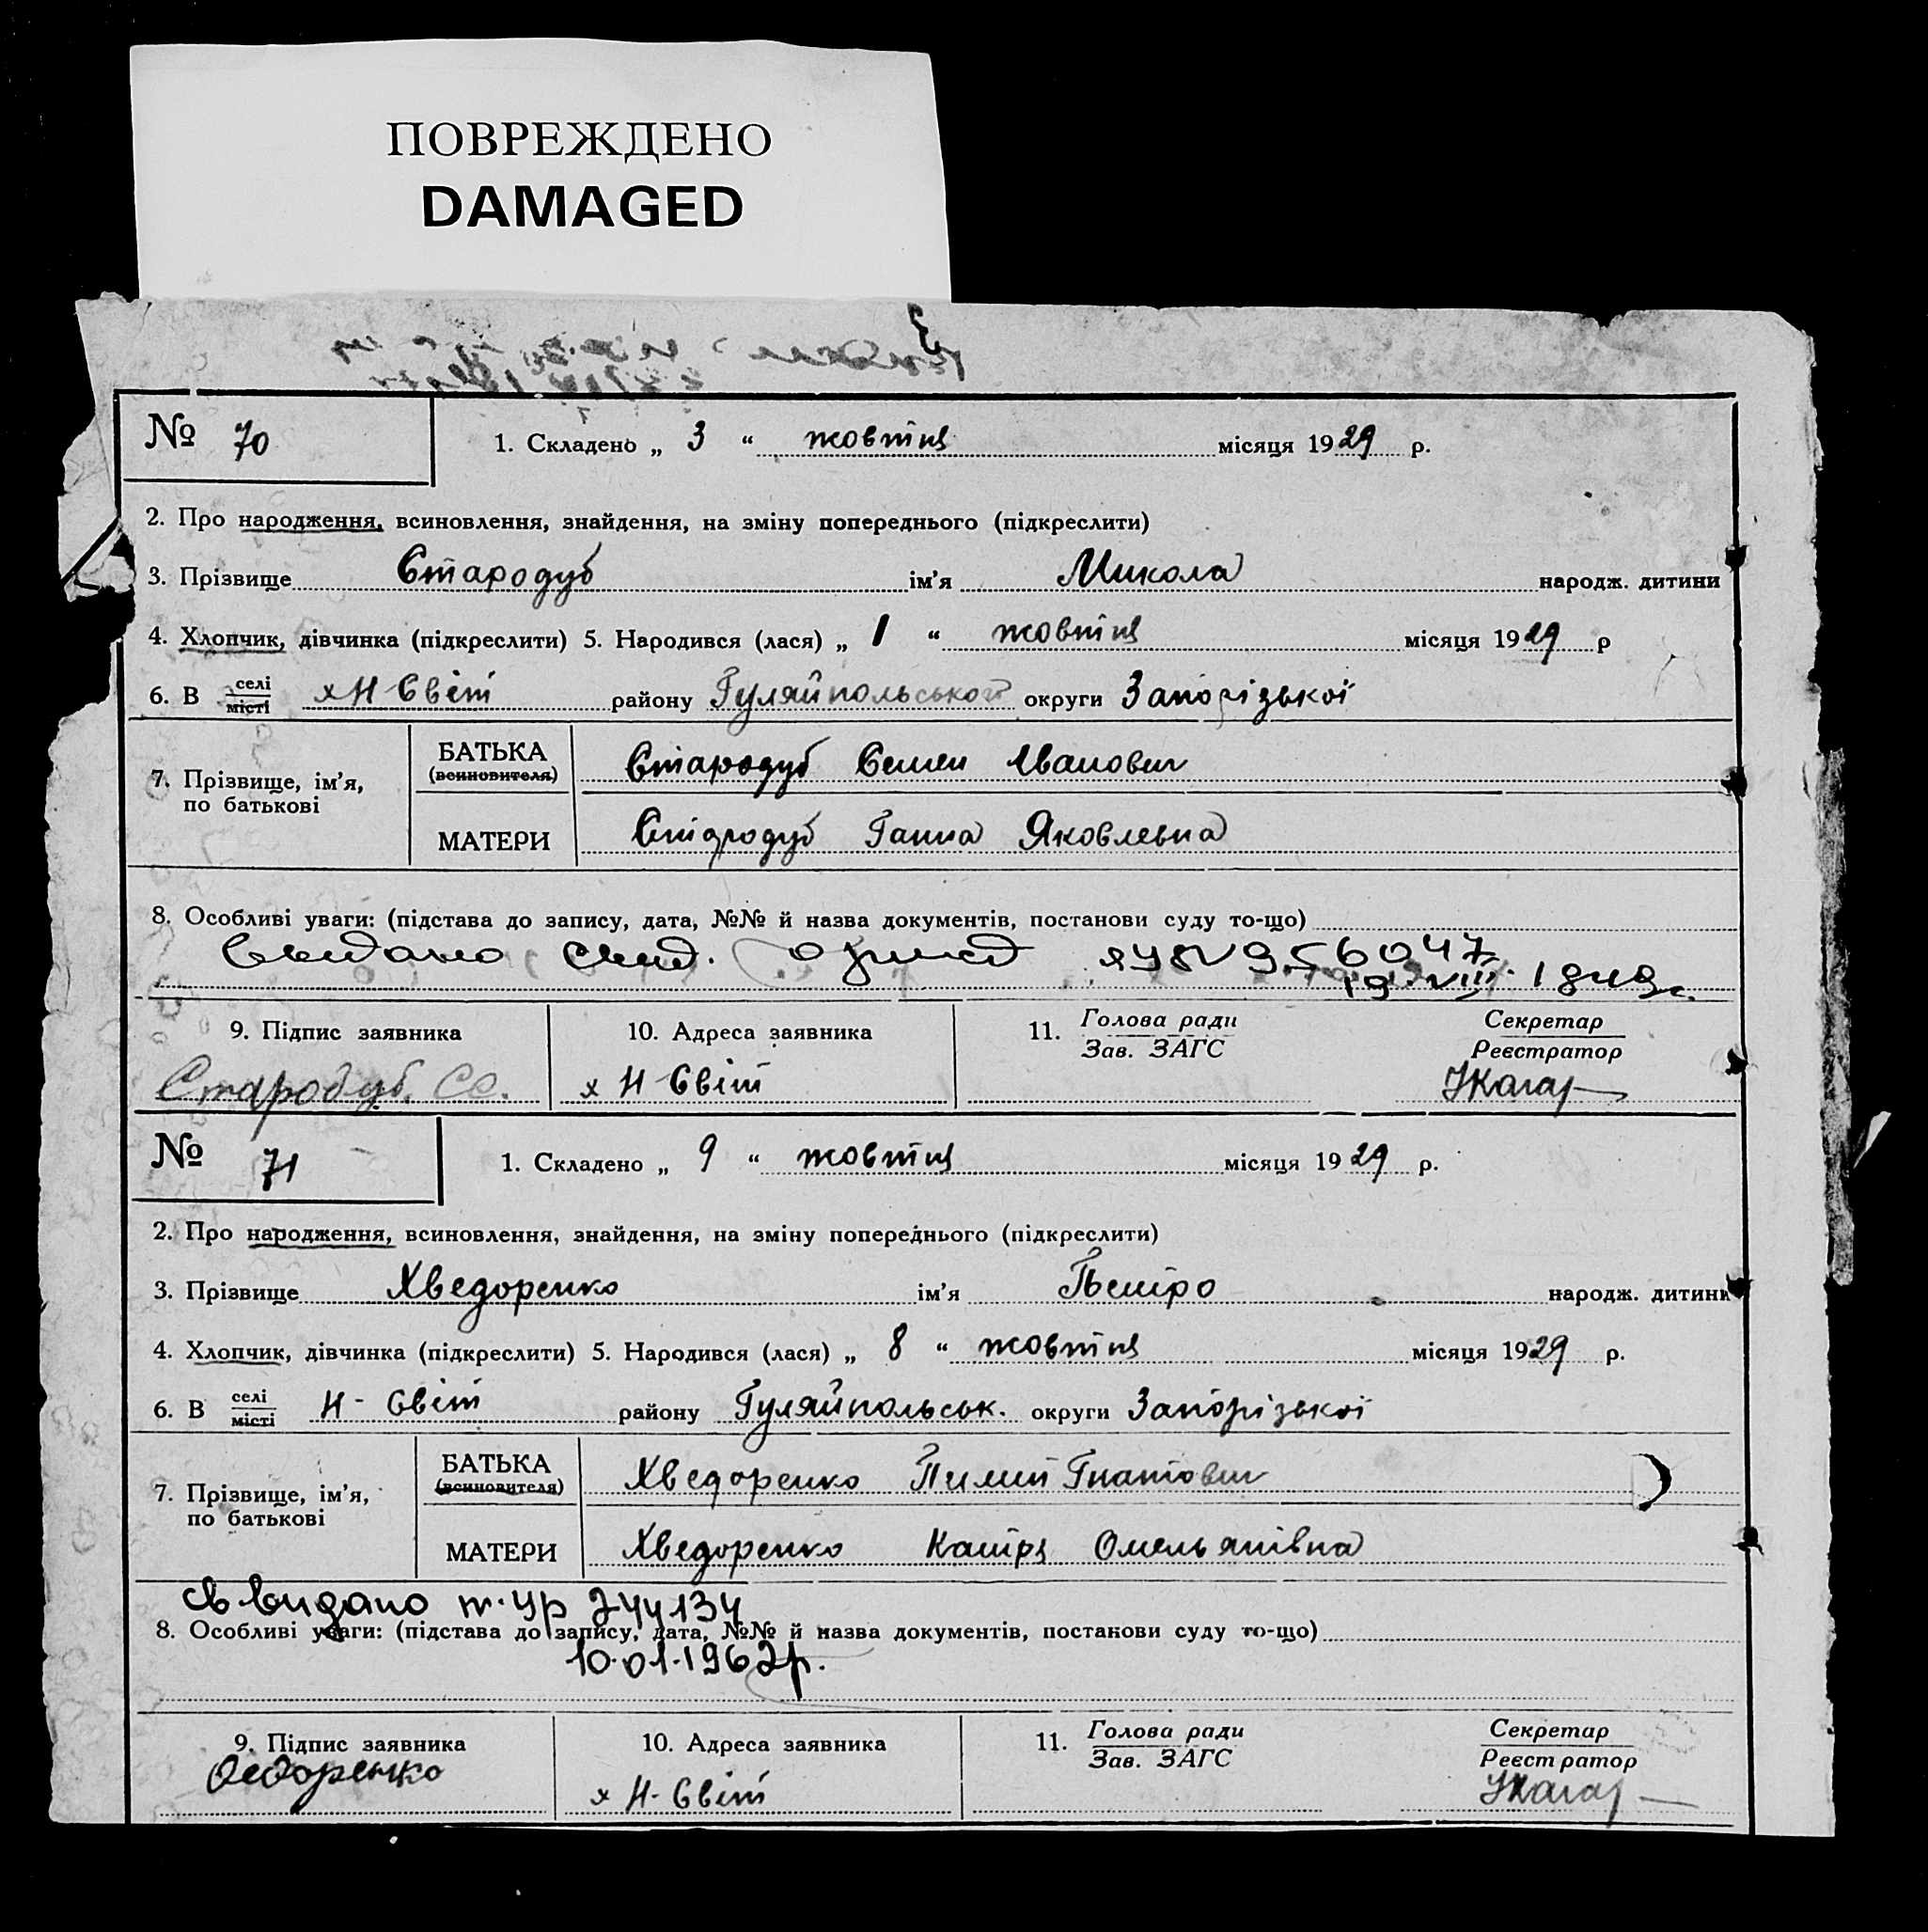 ПОВРЕЖДЕНО
DAMAGED
№ 70
1. Складено „ 3 “ жовтня місяця 1929 р.
2. Про народження, всиновлення, знайдення, на зміну попереднього (підкреслити)
3. Прізвище Стародуб ім’я Микола народж. дитини
4. Хлопчик, дівчинка (підкреслити) 5. Народився (лася) „ 1 “ жовтня місяця 1929 р
6. В селі місті х Н-Світ району Гуляйпольського округи Запорізької
7. Прізвище, ім’я, по батькові
БАТЬКА (всиновителя) Стародуб Семен Иванович
МАТЕРИ Стародуб Ганна Яковлевна
8. Особливі уваги: (підстава до запису, дата, №№ й назва документів, постанови суду то-що)
19 VIII
9. Підпис заявника
10. Адреса заявника
11. Голова ради Зав. ЗАГС
Секретар Реєстратор
Стародуб. СС.
х Н-Світ
№ 71
1. Складено „ 9 “ жовтня місяця 1929 р.
2. Про народження, всиновлення, знайдення, на зміну попереднього (підкреслити)
3. Прізвище Хведоренко ім’я Петро народж. дитини
4. Хлопчик, дівчинка (підкреслити) 5. Народився (лася) „ 8 “ жовтня місяця 1929 р.
6. В селі місті Н-Світ району Гуляйпольськ. округи Запорізької
7. Прізвище, ім’я, по батькові
БАТЬКА (всиновителя) Хведоренко Пилип Гнатович
МАТЕРИ Хведоренко Катря Омельянівна
св видано 744134
8. Особливі уваги: (підстава до запису, дата, №№ й назва документів, постанови суду то-що)
10.01.1962р.
9. Підпис заявника
10. Адреса заявника
11. Голова ради Зав. ЗАГС
Секретар Реєстратор
Федоренко
х Н-Світ